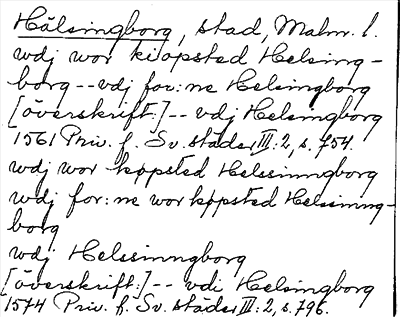 Hälsingborg, stad, Malm. l.
wdj wor kiøpsted Helsing-
borg -- vdj for:ne Helsingborg
[överskrift:] -- vdj Helsingborg
1561 Priv. f. Sv. städer III:2, s. 754.
wdj wor køpsted Helssinngborg
wdj for:ne wor køpsted Helsinng-
borg
wdj Helssinngborg
[överskrift:] -- vdi Helsingborg
1574 Priv. f. Sv. städer III:2, s. 796.